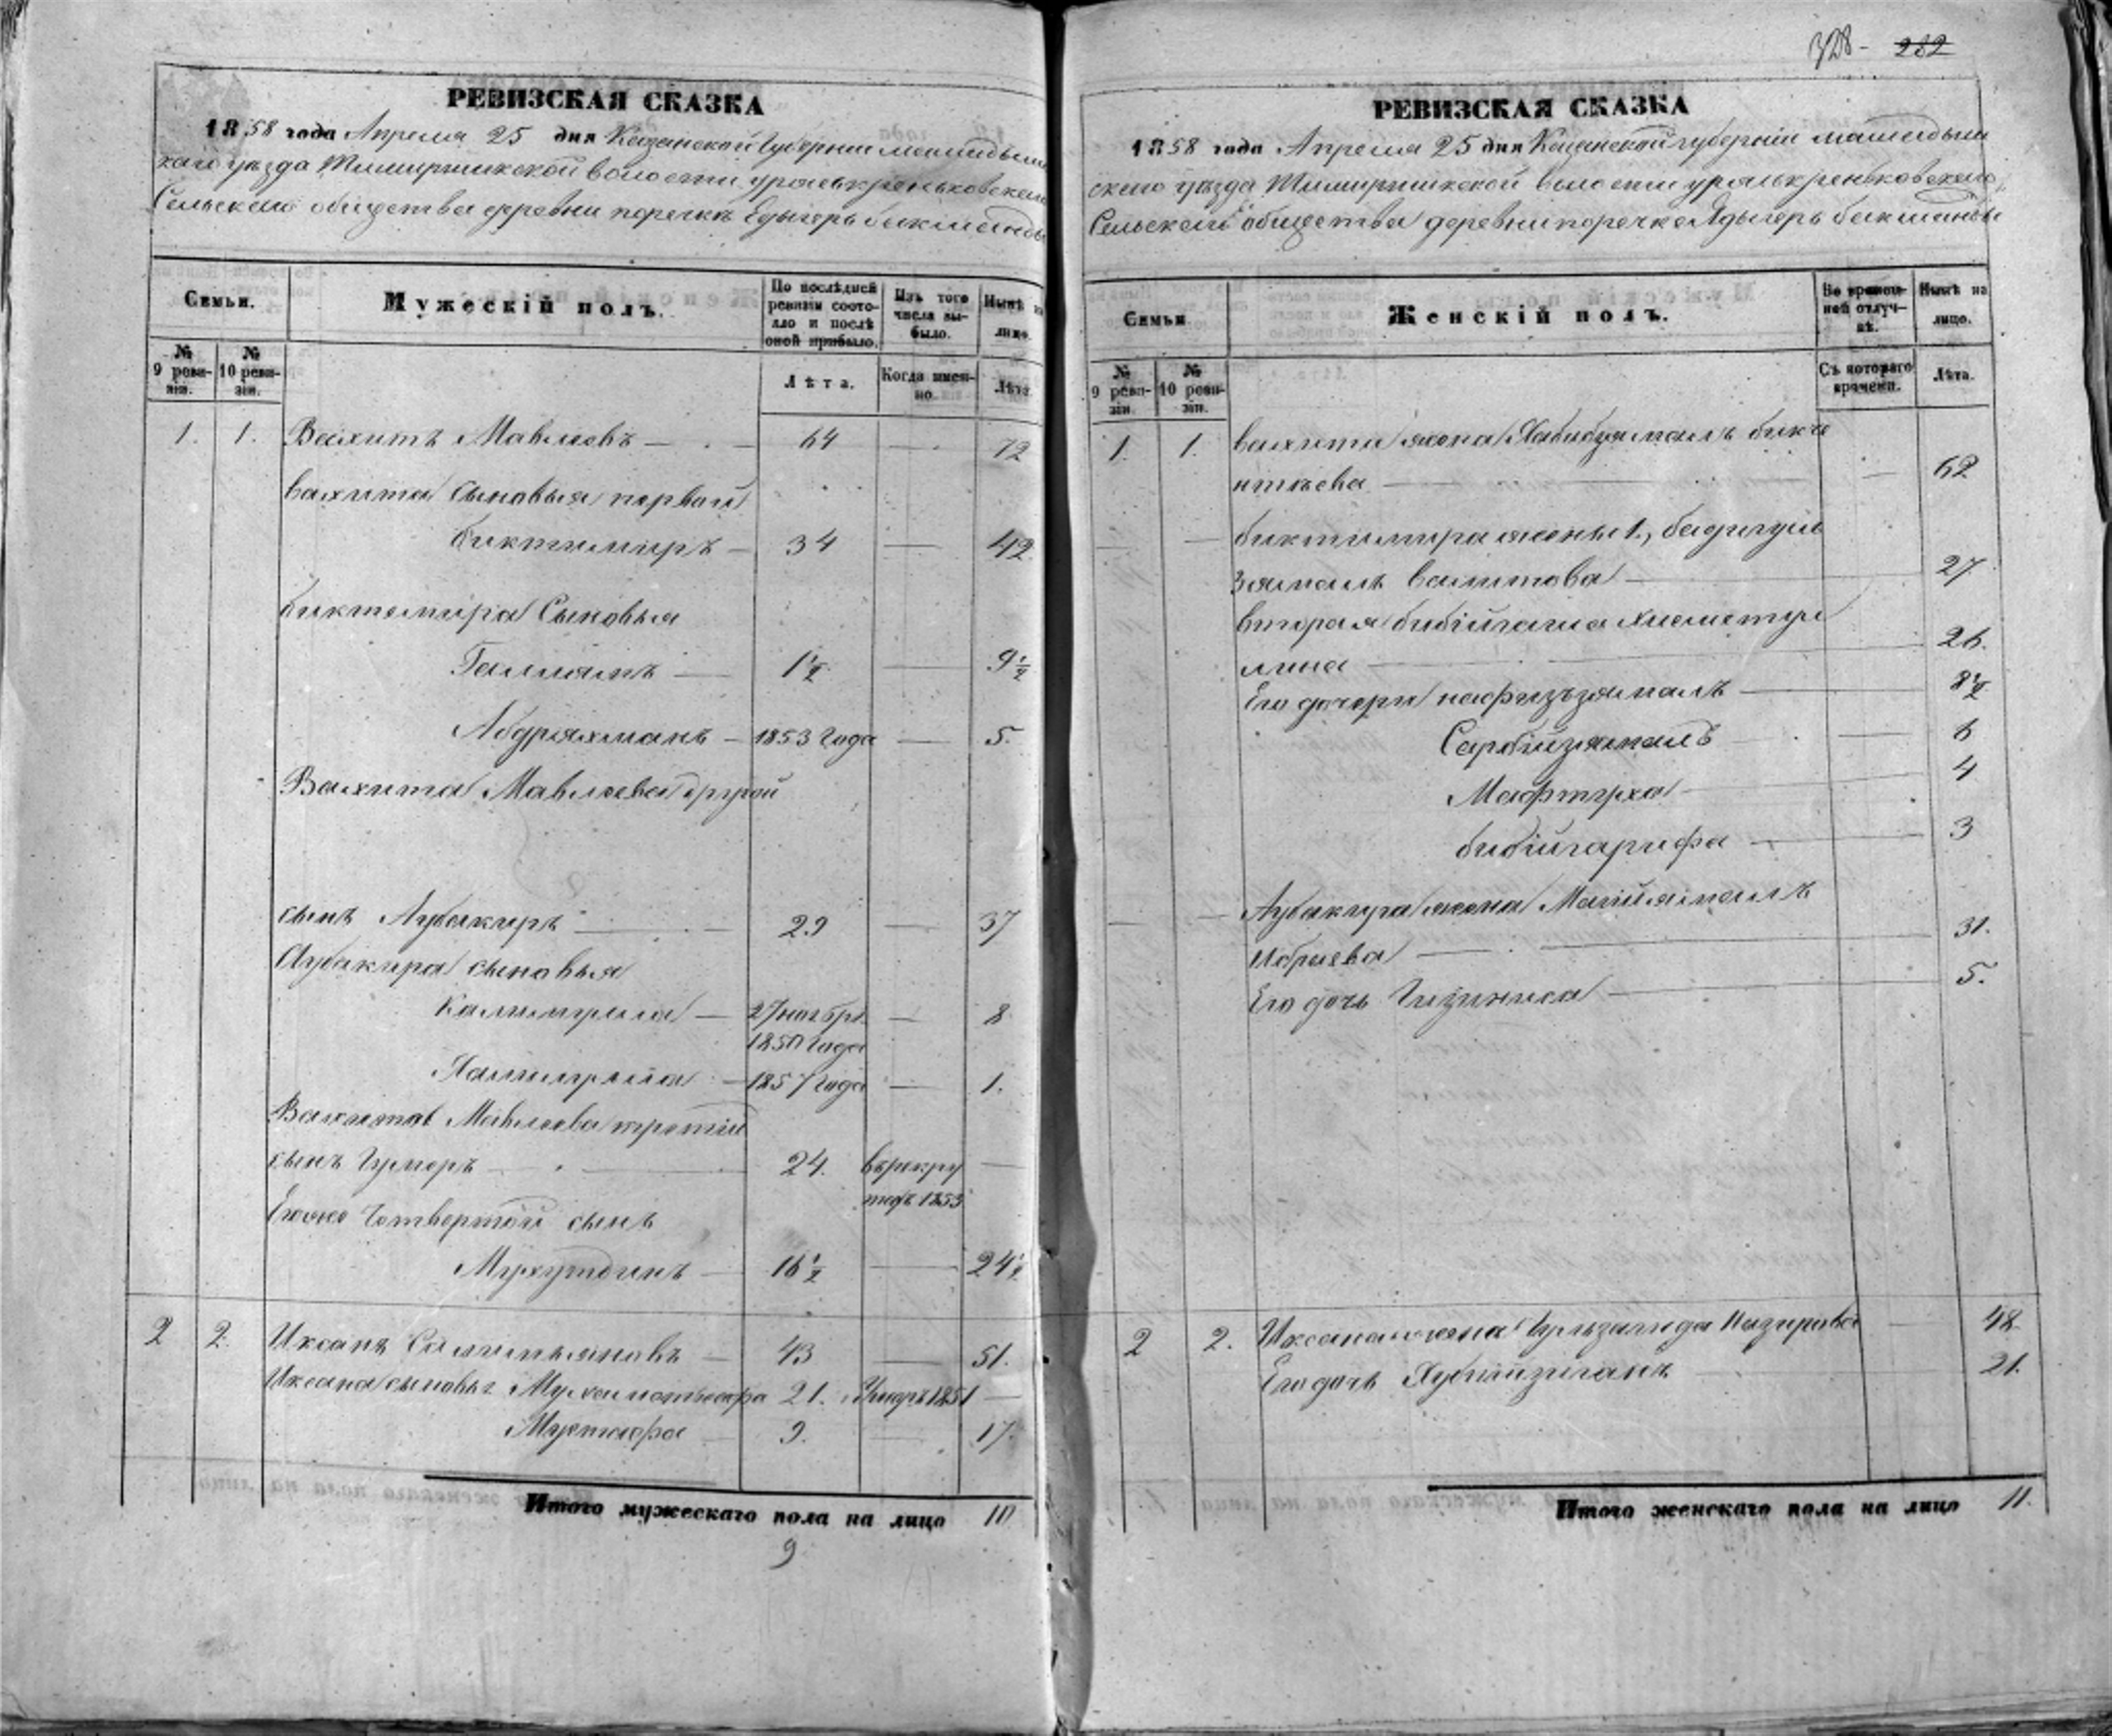 РЕВИЗСКАЯ СКАЗКА
1858 года Апреля 25 дня Казанской Губернии мамадыш
скаго уезда Сельскаго общества деревни поречке Едыгерь бикшенды
Семьи.
Мужескій полъ.
По послѣдней ревизіи состояло и послѣ оной прибыло.
Изъ того числа выбыло.
Нынѣ на лицо.
№ 9 ревизіи.
№ 10 ревизіи.
Лѣта.
Когда именно.
Лѣта.
1. 1. Вахитъ Мавлюевъ — 64 — 72
Вахита сыновья первой
биктимиръ — 34 — 42
биктемира Сыновья
Галиямъ — 1½ — 9½
Абдряхманъ — 1853 года — 5.
Вахита Мавлюева другой
сынъ Аубакиръ — 29 — 37
Аубакира сыновья
Калимулла — 27 ноябр. 1850 года — 8
Халимулла — 1857 года — 1.
Вахита Мавлюева третій
сынъ Гумеръ — 24. в рекру тахъ 1853 —
Его же Четвертой сынъ
Мухутдинъ — 16½ — 24½
2 2. Иксанъ — 43 — 51.
Иксана сыновья 21. Умеръ 1851 —
Мустафа — 9. — 17.
Итого мужескаго пола на лицо 10
9
328- 282
РЕВИЗСКАЯ СКАЗКА
1858 года Апреля 25 дня Казанской губерніи мамадыш
скаго уезда волости
Сельскаго общества деревни поречке Ядыгерь бикшенды
Семьи
Женскій полъ.
Во временной отлучкѣ.
Нынѣ на лицо.
№ 9 ревизіи.
№ 10 ревизіи.
Съ котораго времени.
Лѣта.
1. 1. Вахита жена Хабибзямалъ бикче
нтяева — 62
биктимира жены 1., бадигуль
зямалъ валитова — 27
вторая
лина — 26.
Его дочери нафизязямалъ — 8½
Сарбійзямалъ — 6
Мафтуха — 4
бибигарифа — 3
Аубакира жена
Ибряева — 31.
Его дочь Гизиниса — 5.
2 2. Иксана жена Гульзагида Назирова — 48
Его дочь — 21.
Итого женскаго пола на лицо 11.